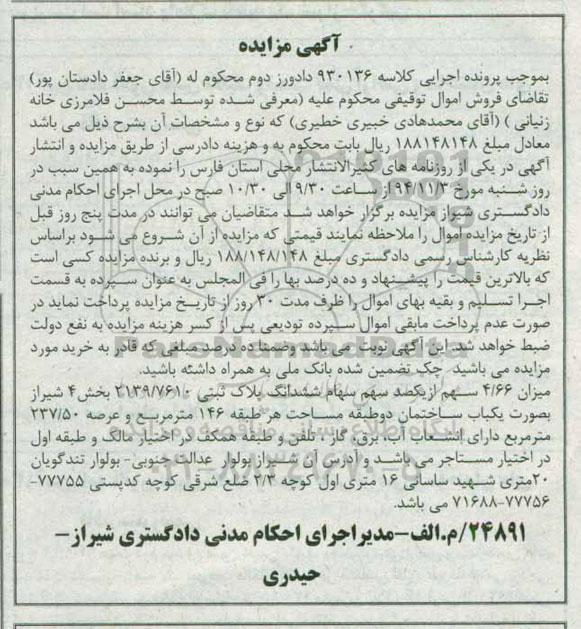 آگهی مزایده
بموجب پرونده اجرایی کلاسه ۹۳۰۱۳۶ دادورز دوم محکوم له (آقای جعفر دادستان پور)
تقاضای فروش اموال توقیفی محکوم علیه (معرفی شده توسط محسن فلامرزی خانه
زنیانی ) (آقای محمدهادی خبیری خطیری) که نوع و مشخصات آن بشرح ذیل می باشد
معادل مبلغ ۱۸۸۱۴۸۱۴۸ ریال بابت محکوم به و هزینه دادرسی از طریق مزایده و انتشار
آگهی در یکی از روزنامه های کثیرالانتشار محلی استان فارس را نموده به همین سبب در
روز شنبه مورخ ۹۴/۱۱/۳ از ساعت ۹/۳۰ الی ۱۰/۳۰ صبح در محل اجرای احکام مدنی
دادگستری شیراز مزایده برگزار خواهد شد متقاضیان می توانند در مدت پنج روز قبل
از تاریخ مزایده اموال را ملاحظه نمایند قیمتی که مزایده از آن شروع می شود براساس
نظریه کارشناس رسمی دادگستری مبلغ ۱۸۸/۱۴۸/۱۴۸ ریال و برنده مزایده کسی است
که بالاترین قیمت را پیشنهاد و ده درصد بها را فی المجلس به عنوان سپرده به قسمت
اجرا تسلیم و بقیه بهای اموال را ظرف مدت ۳۰ روز از تاریخ مزایده پرداخت نماید در
صورت عدم پرداخت مابقی اموال سپرده تودیعی پس از کسر هزینه مزایده به نفع دولت
ضبط خواهد شد. این آگهی نوبت می باشد وضمنا ده درصد مبلغی که قادر به خرید مورد
مزایده می باشید چک تضمین شده بانک ملی به همراه داشته باشید.
میزان ۴/۶۶ سهم ازیکصد سهم سهام ششدانگ پلاک ثبتی ۲۱۳۹/۷۶۱۰ بخش۴ شیراز
بصورت یکباب ساختمان دوطبقه مساحت هر طبقه ۱۴۶ مترمربع و عرصه ۲۳۷/۵۰
مترمربع دارای انشعاب آب، برق، گاز ، تلفن و طبقه همکف در اختیار مالک و طبقه اول
در اختیار مستاجر می باشد و آدرس آن شیراز بولوار عدالت جنوبی- بولوار تندگویان
۲۰متری شهید ساسانی ۱۶ متری اول کوچه ۲/۳ ضلع شرقی کوچه کدپستی ۷۷۷۵۵-
۷۱۶۸۸-۷۷۷۵۶ می باشد.
۲۴۸۹۱/م.الف-مدیراجرای احکام مدنی دادگستری شیراز-
حیدری